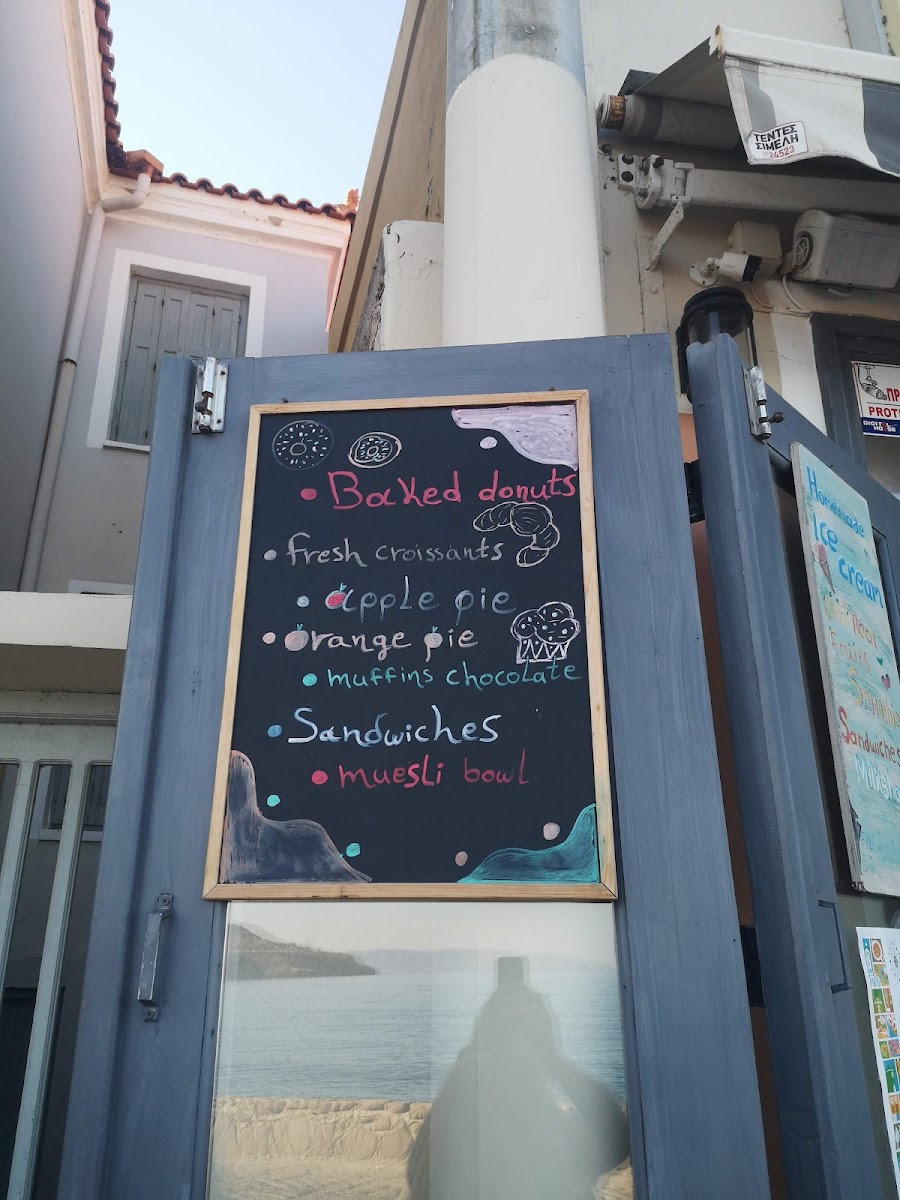 ΤΕΝΤΕΣ
ΣΙΜΕΛΗ
24523
Baked donuts
fresh croissants
apple pie
Orange pie
muffins chocolate
Sandwiches
muesli bowl
Homemade
Ice cream
Sandwiches
DIGITAL